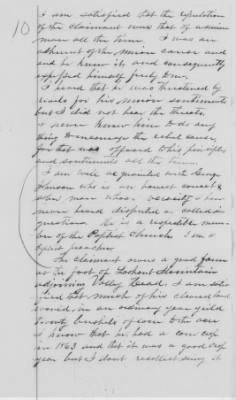 10
I am satisfied that the reputation
of the claimant was that of a Union
man all the time. I was an
adherent of the Union cause and
and he knew it, and consequently
expressed himself freely to me.
I heard that he was threatened by
rebels for his Union sentiments
but I did not hear the threats,
I never knew him to do any
thing to encourage the rebel cause,
for that was opposed to his principles
and sentiments all the time.
I am well acquainted with George
Johnson who is an honest correct &
man whose veracity I have
never heard disputed or called in
question. He is a respectable mem-
ber of the Baptist Church I am a
Baptist preacher
The claimant owns a good farm
at the foot of Lookout Mountain
adjoining Valley Head. I am satis-
fied that much of his claimed land
would, in an ordinary year yield
twenty bushels of corn to the acre
I know that he had a corn crop
in 1863 and that it was a good crop
year but I dont recollect seeing it